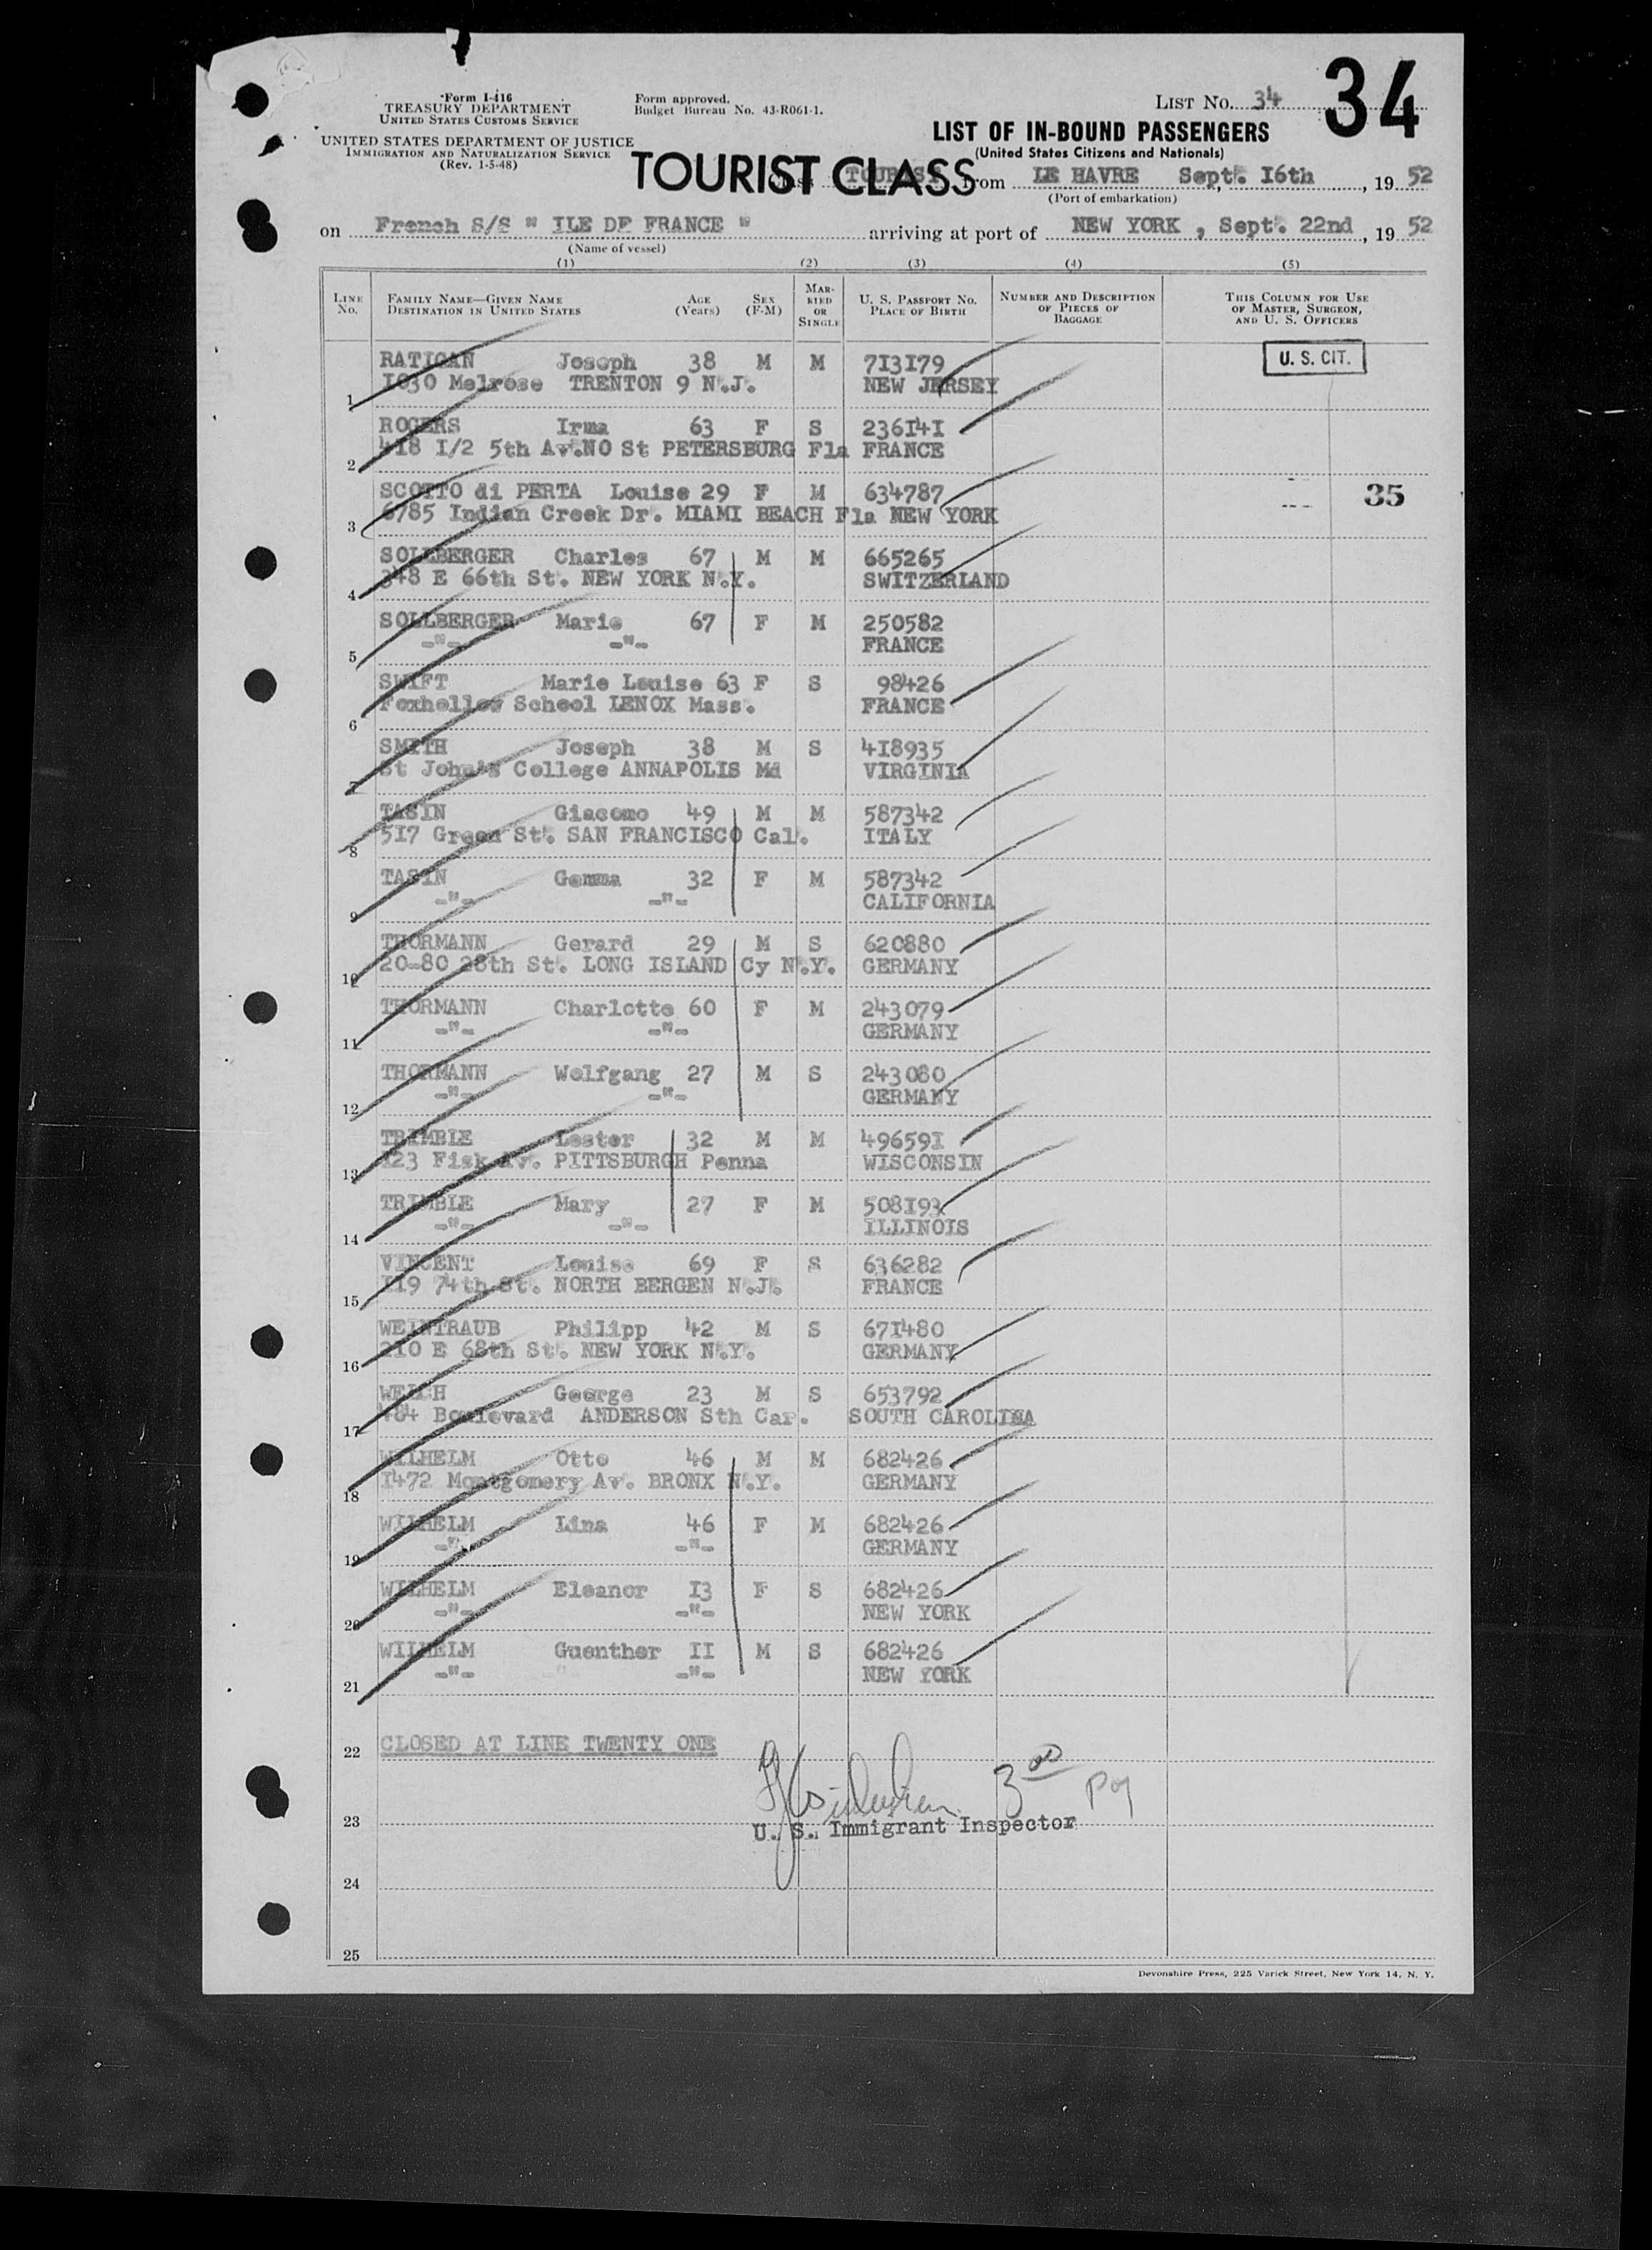 34
Form I-416
TREASURY DEPARTMENT
UNITED STATES CUSTOMS SERVICE
UNITED STATES DEPARTMENT OF JUSTICE
IMMIGRATION AND NATURALIZATION SERVICE
(Rev. 1-5-48)
Form approved.
Budget Bureau No. 43-R061-1.
LIST NO. 34
LIST OF IN-BOUND PASSENGERS
(United States Citizens and Nationals)
TOURIST CLASS
Class TOURIST from LE HAVRE Sept. I6th, 19 52
(Port of embarkation)
on French S/S " ILE DE FRANCE " arriving at port of NEW YORK , Sept. 22nd, 19 52
(Name of vessel)
(1) (2) (3) (4) (5)
LINE NO. FAMILY NAME—GIVEN NAME DESTINATION IN UNITED STATES AGE (Years) SEX (F-M) MARRIED OR SINGLE U. S. PASSPORT NO. PLACE OF BIRTH NUMBER AND DESCRIPTION OF PIECES OF BAGGAGE THIS COLUMN FOR USE OF MASTER, SURGEON, AND U. S. OFFICERS
RATIGAN Joseph 38 M M 7I3I79 U. S. CIT.
1 I030 Melrose TRENTON 9 N.J. NEW JERSEY
ROGERS Irma 63 F S 236I4I
2 4I8 I/2 5th Av.NO St PETERSBURG Fla FRANCE
SCOTTO di PERTA Louise 29 F M 634787 35
3 6785 Indian Creek Dr. MIAMI BEACH Fla NEW YORK
SOLLBERGER Charles 67 M M 665265
4 348 E 66th St. NEW YORK N.Y. SWITZERLAND
SOLLBERGER Marie 67 F M 250582
5 -"- -"- FRANCE
SWIFT Marie Louise 63 F S 98426
6 Foxhollow School LENOX Mass. FRANCE
SMITH Joseph 38 M S 4I8935
7 St John's College ANNAPOLIS Md VIRGINIA
TASIN Giacomo 49 M M 587342
8 5I7 Green St. SAN FRANCISCO Cal. ITALY
TASIN Gemma 32 F M 587342
9 -"- -"- CALIFORNIA
THORMANN Gerard 29 M S 620880
10 20-80 28th St. LONG ISLAND Cy N.Y. GERMANY
THORMANN Charlotte 60 F M 243079
11 -"- -"- GERMANY
THORMANN Wolfgang 27 M S 243080
12 -"- -"- GERMANY
TRIMBLE Lester 32 M M 49659I
13 I23 Fisk Av. PITTSBURGH Penna WISCONSIN
TRIMBLE Mary 27 F M 508I93
14 -"- -"- ILLINOIS
VINCENT Louise 69 F S 636282
15 II9 74th St. NORTH BERGEN N.J. FRANCE
WEINTRAUB Philipp 42 M S 67I480
16 2I0 E 68th St. NEW YORK N.Y. GERMANY
WELCH George 23 M S 653792
17 484 Boulevard ANDERSON Sth Car. SOUTH CAROLINA
WILHELM Otto 46 M M 682426
18 I472 Montgomery Av. BRONX N.Y. GERMANY
WILHELM Lina 46 F M 682426
19 -"- -"- GERMANY
WILHELM Eleanor I3 F S 682426
20 -"- -"- NEW YORK
WILHELM Guenther II M S 682426
21 -"- -"- NEW YORK
22 CLOSED AT LINE TWENTY ONE
3 00
23 U. S. Immigrant Inspector
24
25
Devonshire Press, 225 Varick Street, New York 14, N. Y.